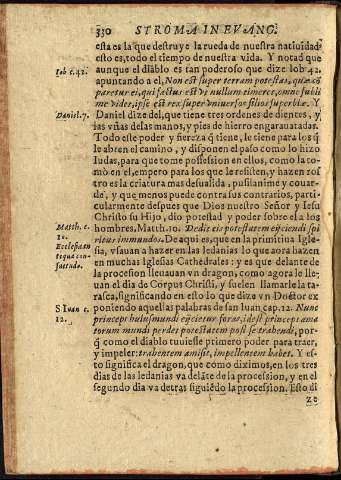 330 STROMA IN EVANG.
esta es la que destruye la rueda de nuestra natiuidad
esto es, todo el tiempo de nuestra vida. Y notad que
Iob c. 42.
aunque el diablo es tan poderoso que dize Iob 42.
apuntando a el, Non est super terram potestas, quæ cõ
paretur ei, qui factus est vt nullum timeret, omne subli
me videt, ipse est rex super vniuersos filios superbiæ. Y
Daniel. 7.
Daniel dize del, que tiene tres ordenes de dientes, y
las vñas de las manos, y pies de hierro engarauatadas.
Todo este poder y fiereza q̃ tiene, le tiene para los q̃
le abren el camino, y disponen el paso como lo hizo
Iudas, para que tome possession en ellos, como la to-
mò en el, empero para los que le resisten, y hazen ros
tro es la criatura mas desualida, pusilanime y couar-
de, y que menos puede contra sus contrarios, parti-
cularmente despues que Dios nuestro Señor y Iesu
Christo su Hijo, dio potestad y poder sobre el a los
Matth. c.
10.
hombres, Matth. 10. Dedit eis potestatem eijciendi spi
ritus immundos. De aqui es, que en la primitiua Igle
Ecclesia an
tequa con-
suetudo.
sia, vsauan a hazer en las ledanias lo que aora hazen
en muchas Iglesias Cathedrales: y es que delante de
la procession lleuauan vn dragon, como agora le lle-
uan el dia de Corpus Christi, y suelen llamarle la ta-
rasca, significando en esto lo que dize vn Doctor ex
S Iuan c.
12.
poniendo aquellas palabras de san Iuan, cap. 12. Nunc
princeps huius mundi eijcietur foras, id est princeps ama
torum mundi perdet potestatem post se trahendi, por-
q̃ como el diablo tuuiesse primero poder para traer,
y impeler: trahentem amisit, impellentem habet. Y es-
to significa el dragon, que como diximos, en los tres
dias de las ledanias va delãte de la procession, y en el
segundo dia va detras siguiẽdo la procession. Esto di
ze